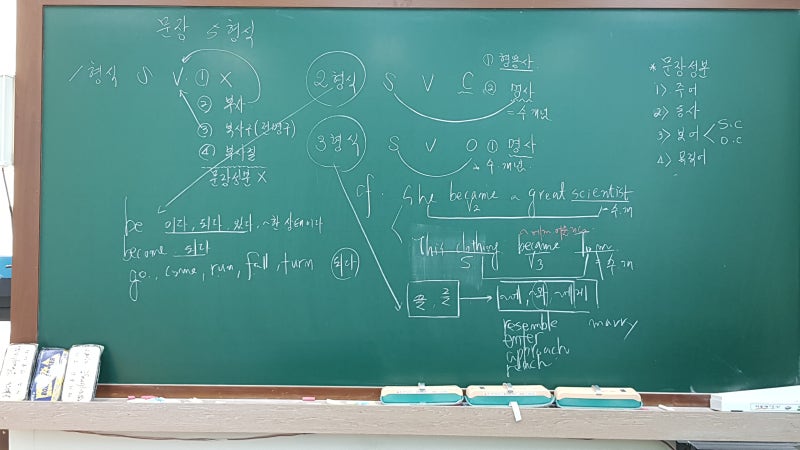 문장 5형식
1형식 S V ① X
② 부사
③ 부사구(전명구)
④ 부사절
문장성분 X
be 이다, 되다, 있다, ~한 상태이다
become 되다
go, come, run, fall, turn 되다
2형식 S V C ① 형용사
② 명사
= 주 개념
3형식 S V O ① 명사
≠ 주 개념
cf. She became a great scientist
V2
This clothing became Tom
S V3
을, 를 → ~에, ~와, ~에게
resemble marry
enter
approach
reach
* 문장성분
1> 주어
2> 동사
3> 보어 < S.C
O.C
4> 목적어